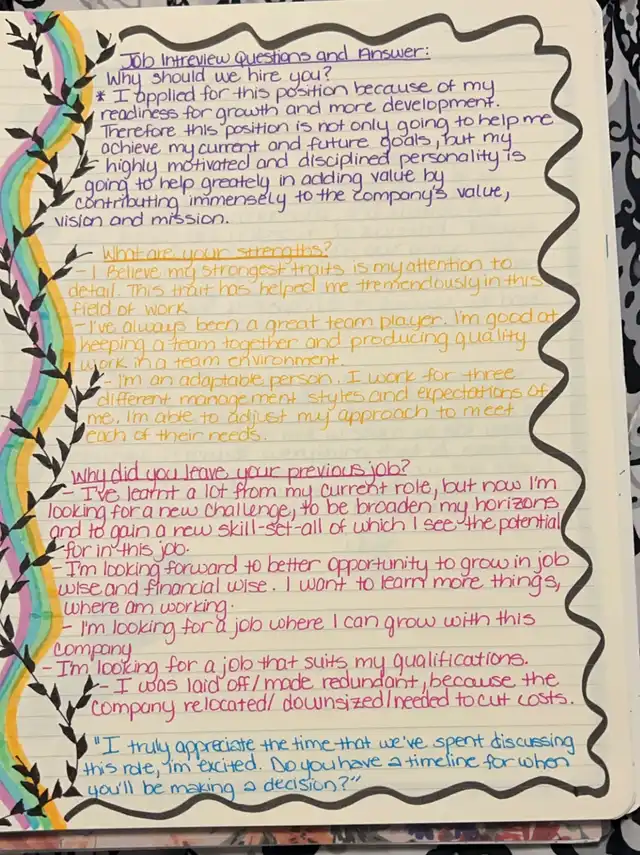 Job Intreview Questions and Answer:
Why should we hire you?
* I applied for this position because of my
readiness for growth and more development.
Therefore this position is not only going to help me
achieve my current and future goals, but my
highly motivated and disciplined personality is
going to help greately in adding value by
contributing immensely to the company's value,
vision and mission.
What are your strengths?
- I Believe my strongest traits is my attention to
detail. This trait has helped me tremendously in this
field of work
- I've always been a great team player. I'm good at
keeping a team together and producing quality
work in a team environment.
- I'm an adaptable person. I work for three
different management styles and expectations of
me. I'm able to adjust my approach to meet
each of their needs.
Why did you leave your previous job?
- I've learnt a lot from my current role, but now I'm
looking for a new challenge, to be broaden my horizons
and to gain a new skill-set-all of which I see the potential
for in this job.
- I'm looking forward to better opportunity to grow in job
wise and financial wise. I want to learn more things,
where am working.
- I'm looking for a job where I can grow with this
company
- I'm looking for a job that suits my qualifications.
- I was laid off/made redundant, because the
company relocated/downsized/needed to cut costs.
"I truly appreciate the time that we've spent discussing
this role, i'm excited. Do you have a timeline for when
you'll be making a decision?"